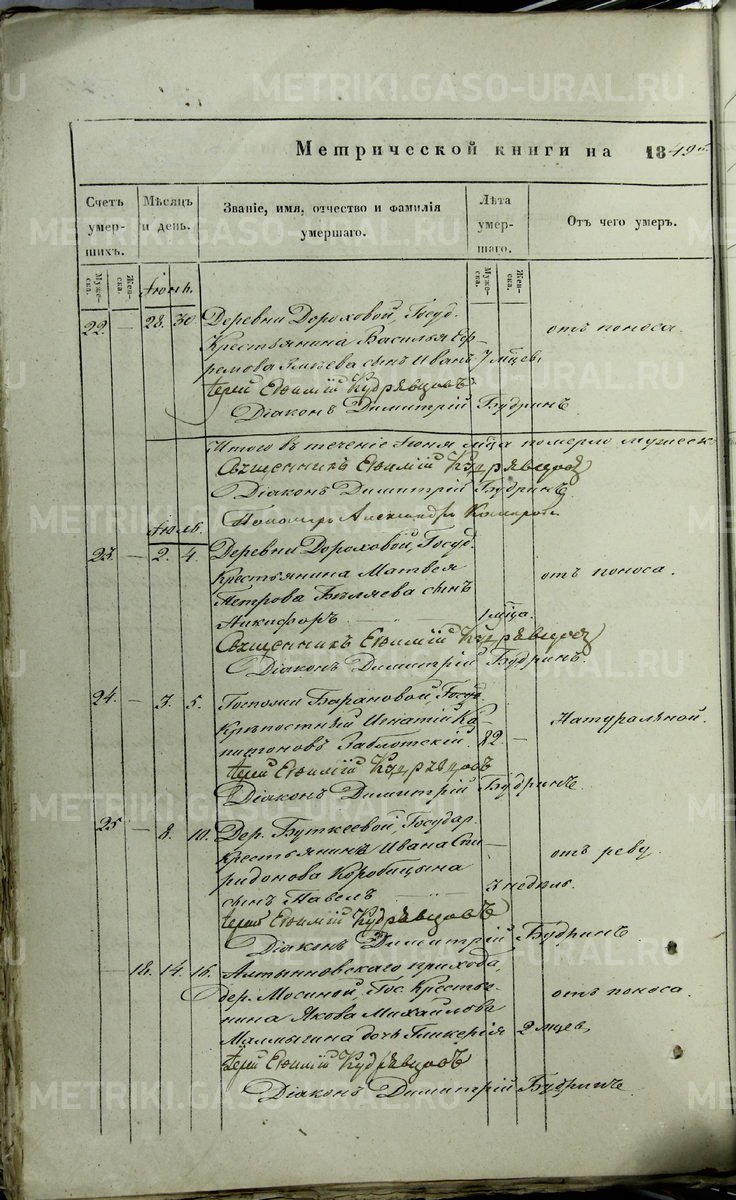 METRIKI.GASO-URAL.RU
Метрической книги на 1849 г.
Счетъ умер-шихъ.
Мѣсяцъ и день.
Званіе, имя, отчество и фамилія умершаго.
Лѣта умер-шаго.
Отъ чего умеръ.
Муже-ска. Жен-ска.
Муже-ска. Жен-ска.
Іюнь.
22. — 28. 30. Деревни Дороховой, Госуд.
Крестьянина Василья Еф-
ремова сынъ Иванъ 7 мцевъ
отъ поноса.
Іерей Евѳимій Кудрявцовъ
Діаконъ Димитрій Будринъ
Итого въ теченіе Іюня мца померло мужеск.
Священникъ Евѳимій Кудрявцовъ
Діаконъ Димитрій Будринъ
Пономарь Александръ
Іюль.
23. — 2. 4. Деревни Дороховой, Госуд.
Крестьянина Матвея
Петрова Бѣляева сынъ
Никифоръ — 1 мца.
отъ поноса.
Священникъ Евѳимій Кудрявцовъ
Діаконъ Димитрій Будринъ.
24. — 3. 5. Госпожи Барановой,
Крѣпостный Игнатій Ка-
питоновъ Заблотскій. 82. —
Натуральной.
Іерей Евѳимій Кудрявцовъ
Діаконъ Димитрій Будринъ.
25 — 8. 10. Дер. Буткеевой, Государ.
крестьянинъ Ивана Спи-
ридонова Коробицына
сынъ Павелъ — 3 недель.
отъ реву.
Іерей Евѳимій Кудрявцовъ
Діаконъ Димитрій Будринъ
— 18. 14. 16. Алтынновскаго прихода,
дер. Мосиной, Гос. Крестья-
нина Якова Михайлова
Малмыгина дочь Гликерія 2 мцев,
отъ поноса.
Іерей Евѳимій Кудрявцовъ
Діаконъ Димитрій Будринъ